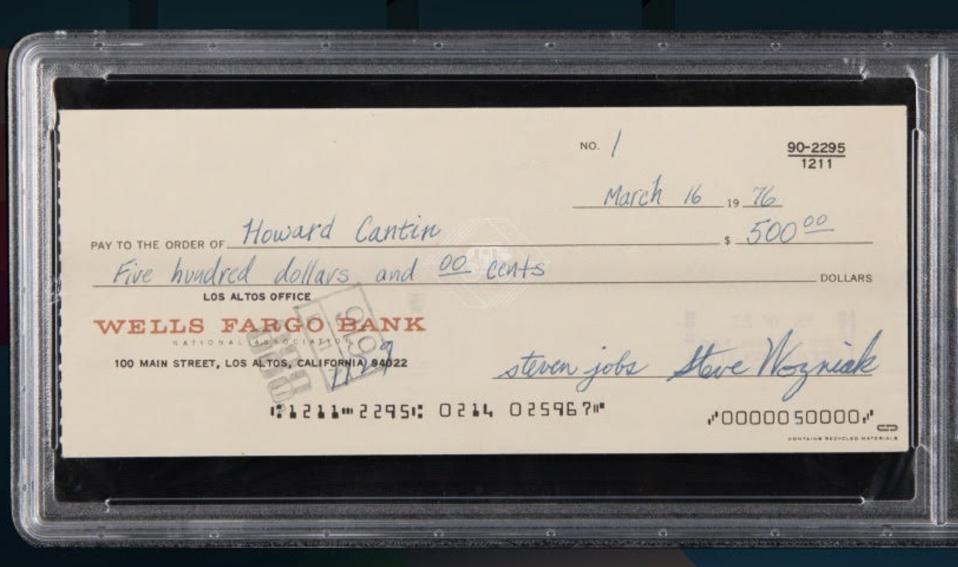 NO. 1
90-2295
1211
March 16 19 76
PAY TO THE ORDER OF Howard Cantin $ 500 00
Five hundred dollars and 00 cents DOLLARS
LOS ALTOS OFFICE
WELLS FARGO BANK
NATIONAL ASSOCIATION
100 MAIN STREET, LOS ALTOS, CALIFORNIA 94022
steven jobs Steve Wozniak
⑆1211⑉2295⑆ 0214 025967⑈ ⑇0000050000⑇
CONTAINS RECYCLED MATERIALS